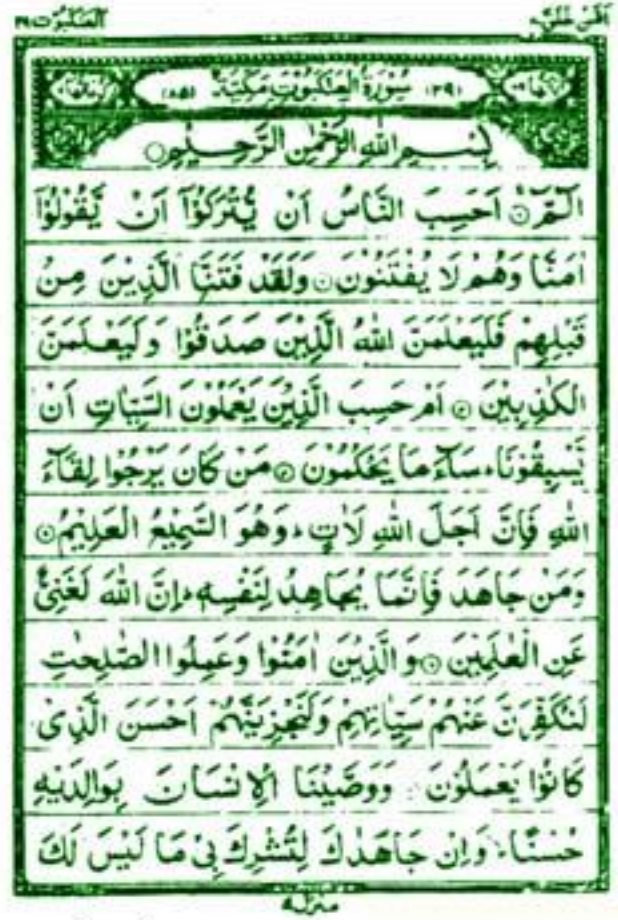 العنكبوت ٢٩
امن خلق ٢٠
سُوْرَةُ الْعَنْكَبُوْتِ مَكِّيَّةٌ (٢٩) (٨٥)
بِسْمِ اللهِ الرَّحْمٰنِ الرَّحِيْمِ
الٓمّٓ ۱ اَحَسِبَ النَّاسُ اَنْ يُّتْرَكُوْٓا اَنْ يَّقُوْلُوْٓا
اٰمَنَّا وَهُمْ لَا يُفْتَنُوْنَ ۲ وَلَقَدْ فَتَنَّا الَّذِيْنَ مِنْ
قَبْلِهِمْ فَلَيَعْلَمَنَّ اللهُ الَّذِيْنَ صَدَقُوْا وَلَيَعْلَمَنَّ
الْكٰذِبِيْنَ ۳ اَمْ حَسِبَ الَّذِيْنَ يَعْمَلُوْنَ السَّيِّاٰتِ اَنْ
يَّسْبِقُوْنَا ؕ سَآءَ مَا يَحْكُمُوْنَ ۴ مَنْ كَانَ يَرْجُوْا لِقَآءَ
اللهِ فَاِنَّ اَجَلَ اللهِ لَاٰتٍ ؕ وَهُوَ السَّمِيْعُ الْعَلِيْمُ ۵
وَمَنْ جَاهَدَ فَاِنَّمَا يُجَاهِدُ لِنَفْسِهٖ ؕ اِنَّ اللهَ لَغَنِيٌّ
عَنِ الْعٰلَمِيْنَ ۶ وَالَّذِيْنَ اٰمَنُوْا وَعَمِلُوا الصّٰلِحٰتِ
لَنُكَفِّرَنَّ عَنْهُمْ سَيِّاٰتِهِمْ وَلَنَجْزِيَنَّهُمْ اَحْسَنَ الَّذِيْ
كَانُوْا يَعْمَلُوْنَ وَوَصَّيْنَا الْاِنْسَانَ بِوَالِدَيْهِ
حُسْنًا ؕ وَاِنْ جَاهَدٰكَ لِتُشْرِكَ بِيْ مَا لَيْسَ لَكَ
منزل ۵